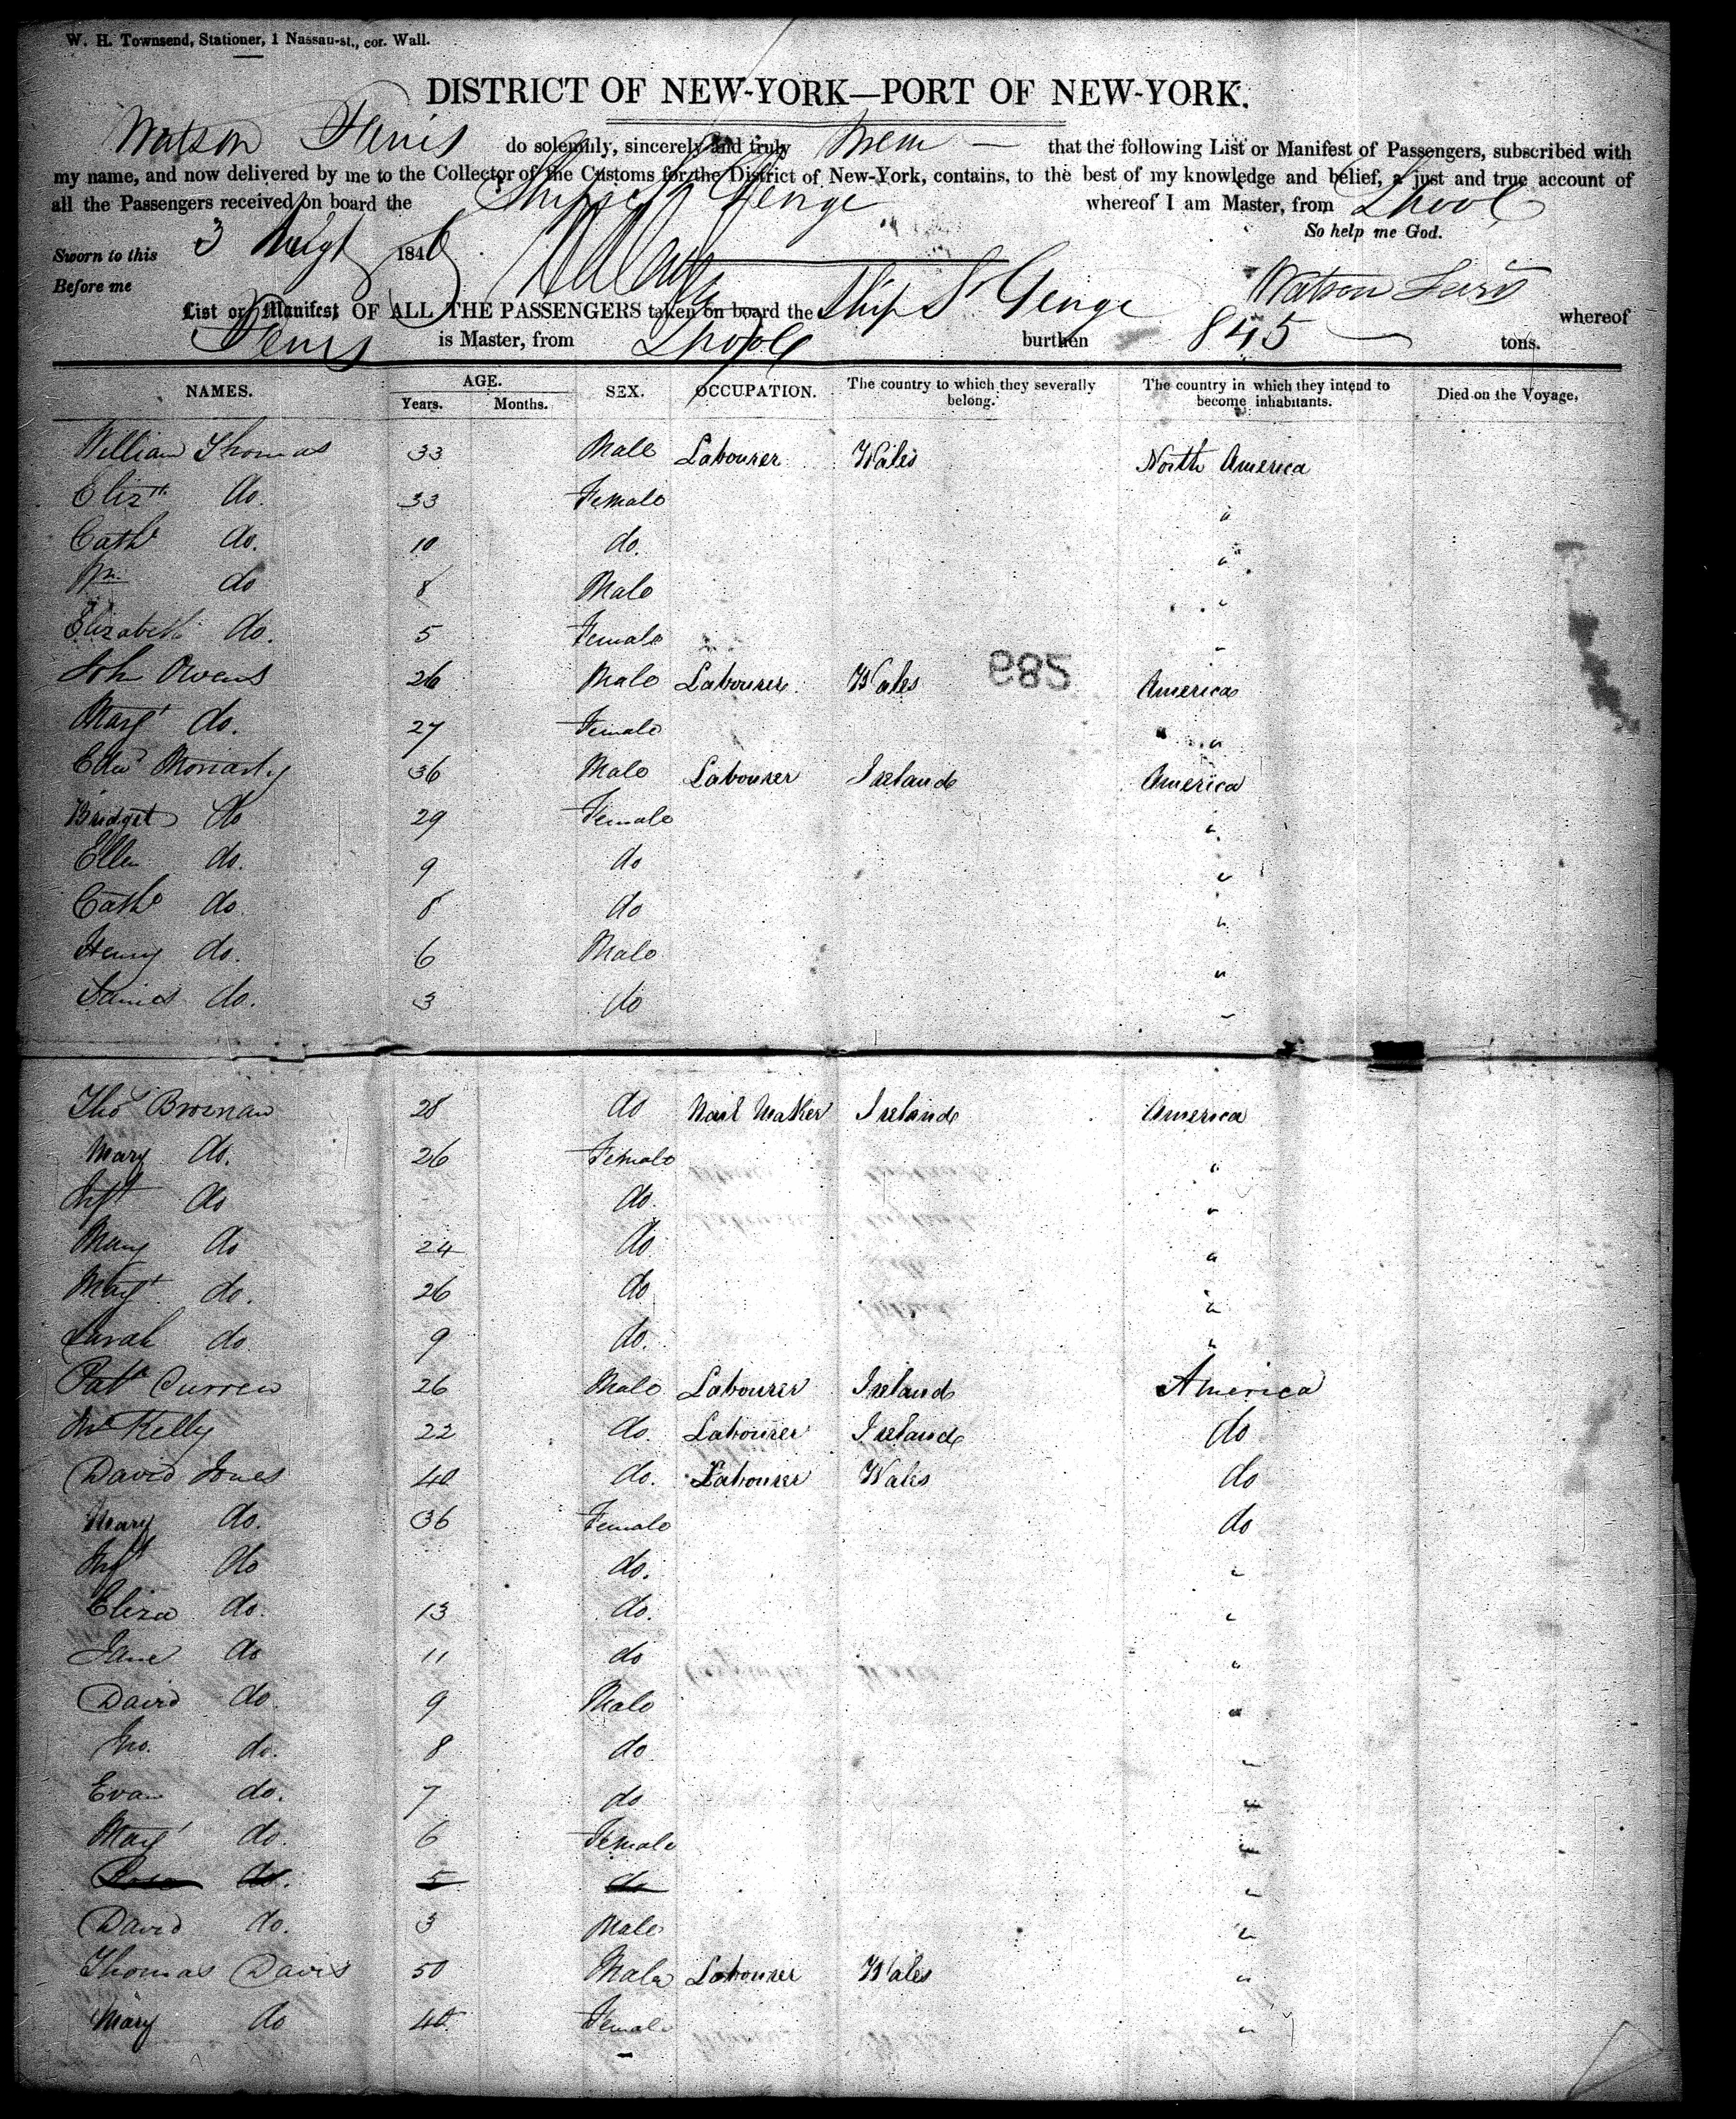 W. H. Townsend, Stationer, 1 Nassau-st., cor. Wall.
DISTRICT OF NEW-YORK—PORT OF NEW-YORK.
Watson Ferris do solemnly, sincerely and truly swear that the following List or Manifest of Passengers, subscribed with
my name, and now delivered by me to the Collector of the Customs for the District of New-York, contains, to the best of my knowledge and belief, a just and true account of
all the Passengers received on board the Ship St George whereof I am Master, from Lpool
So help me God.
Sworn to this 3 Augt 1846
Before me Watson Ferris
List or Manifest OF ALL THE PASSENGERS taken on board the Ship St George whereof
Ferris is Master, from Lpool burthen 845 tons.
NAMES. AGE. SEX. OCCUPATION. The country to which they severally belong. The country in which they intend to become inhabitants. Died on the Voyage,
Years. Months.
William Thomas 33 Male Labourer Wales North America
Elizth do. 33 Female "
Cathe do. 10 do. "
Wm do 8 Male "
Elizabeth do. 5 Female "
982
John Owens 26 Male Labourer Wales America
Margt do. 27 Female "
Edwd Moriarty 36 Male Labourer Ireland America
Bridget do 29 Female "
Ellen do. 9 do "
Cathe do 8 do "
Henry do. 6 Male "
James do. 3 do "
Thos Brosnan 28 do Nail Maker Ireland America
Mary do. 26 Female "
Inft do do. "
Mary do 24 do "
Margt do. 26 do "
Sarah do 9 do. "
Patk Curren 26 Male Labourer Ireland America
Kelly 22 do. Labourer Ireland do
David Jones 40 do. Labourer Wales do
Mary do. 36 Female do
Inft do do. "
Eliza do. 13 do. "
Jane do 11 do "
David do 9 Male "
Jno. do. 8 do "
Evan do. 7 do "
Margt do. 6 Female "
Rosa do. 5 do "
David do. 3 Male "
Thomas Davis 50 Male Labourer Wales "
Mary do 40 Female "